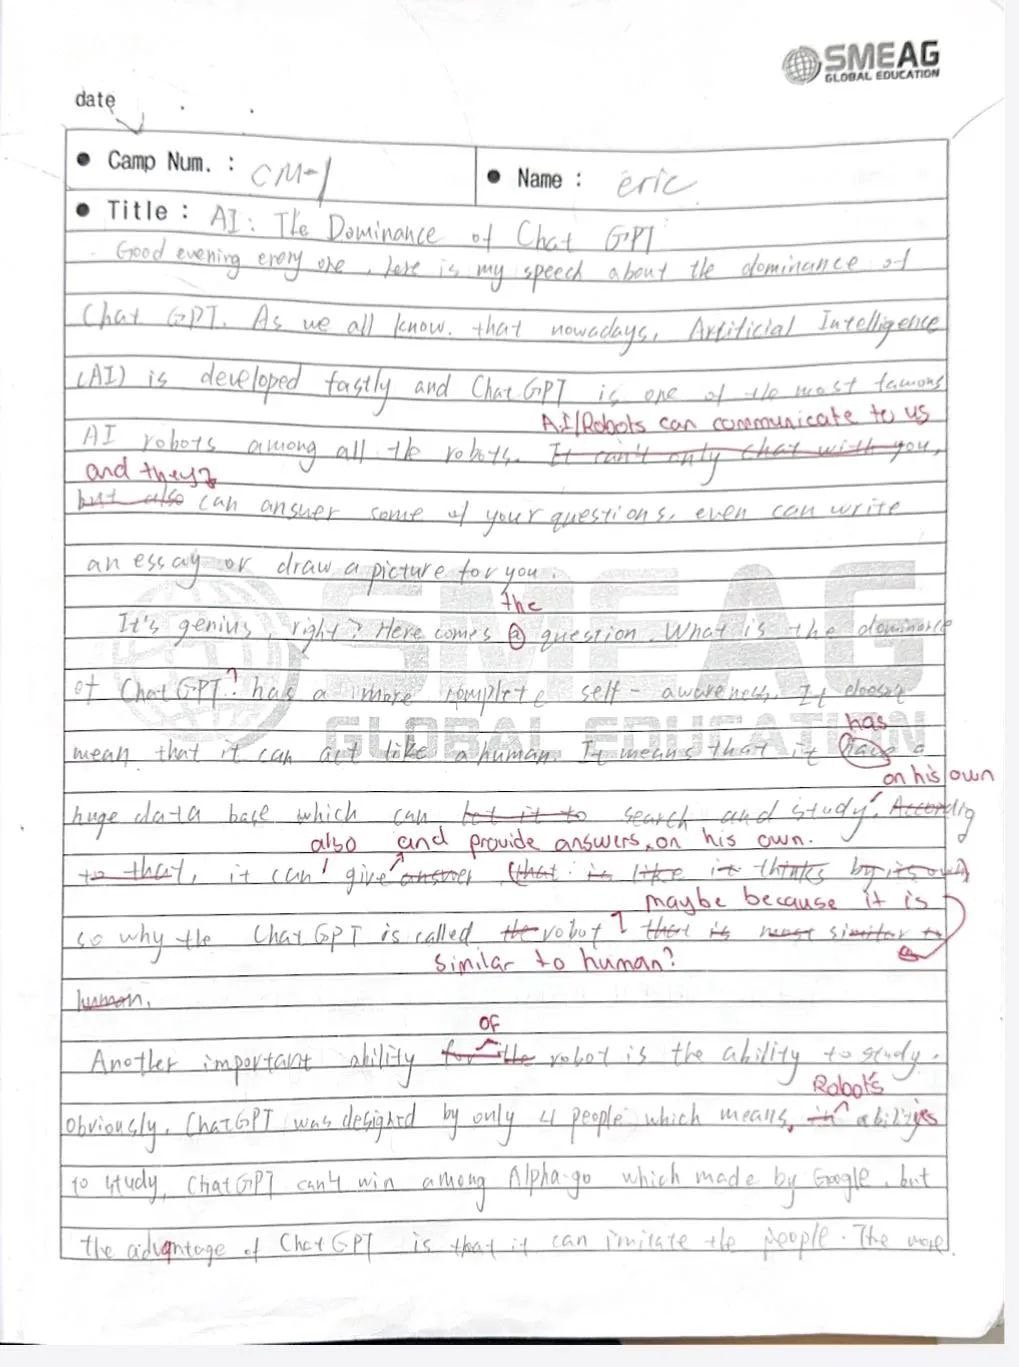 SMEAG
GLOBAL EDUCATION
date . .
• Camp Num. : CM-1
• Name : eric
• Title : AI: The Dominance of Chat GPT
Good evening every one, here is my speech about the dominance of
Chat GPT. As we all know. that nowadays, Artificial Intelligence
(AI) is developed fastly and ChatGPT is one of the most famous
A.I/Robots can communicate to us
AI robots among all the robots. It can't only chat with you,
and they
but also can answer some of your questions, even can write
an essay or draw a picture for you.
the
It's genius, right? Here comes a question. What is the dominance
of ChatGPT? has a more complete self-awareness. It doesn't
has
mean that it can act like a human. It means that it have a
on his own
huge data base which can let it to search and study. According
also and provide answers, on his own.
to that, it can give answer (that is like it thinks by its own)
maybe because it is
so why the Chat GPT is called the robot that is most similar to
similar to human?
human.
of
Another important ability for the robot is the ability to study.
Robot's
Obviously, ChatGPT was designed by only 4 people which means, abilities
to study, ChatGPT can't win among Alpha-go which made by Google, but
the advantage of Chat GPT is that it can imitate the people. The more
SMEAG
GLOBAL EDUCATION